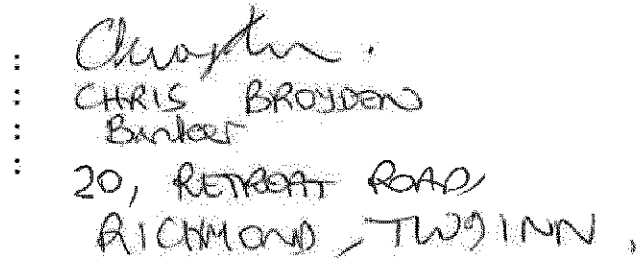 CHRIS BROYDON
Banker
20, RETREAT ROAD,
RICHMOND, TW9 1NN.